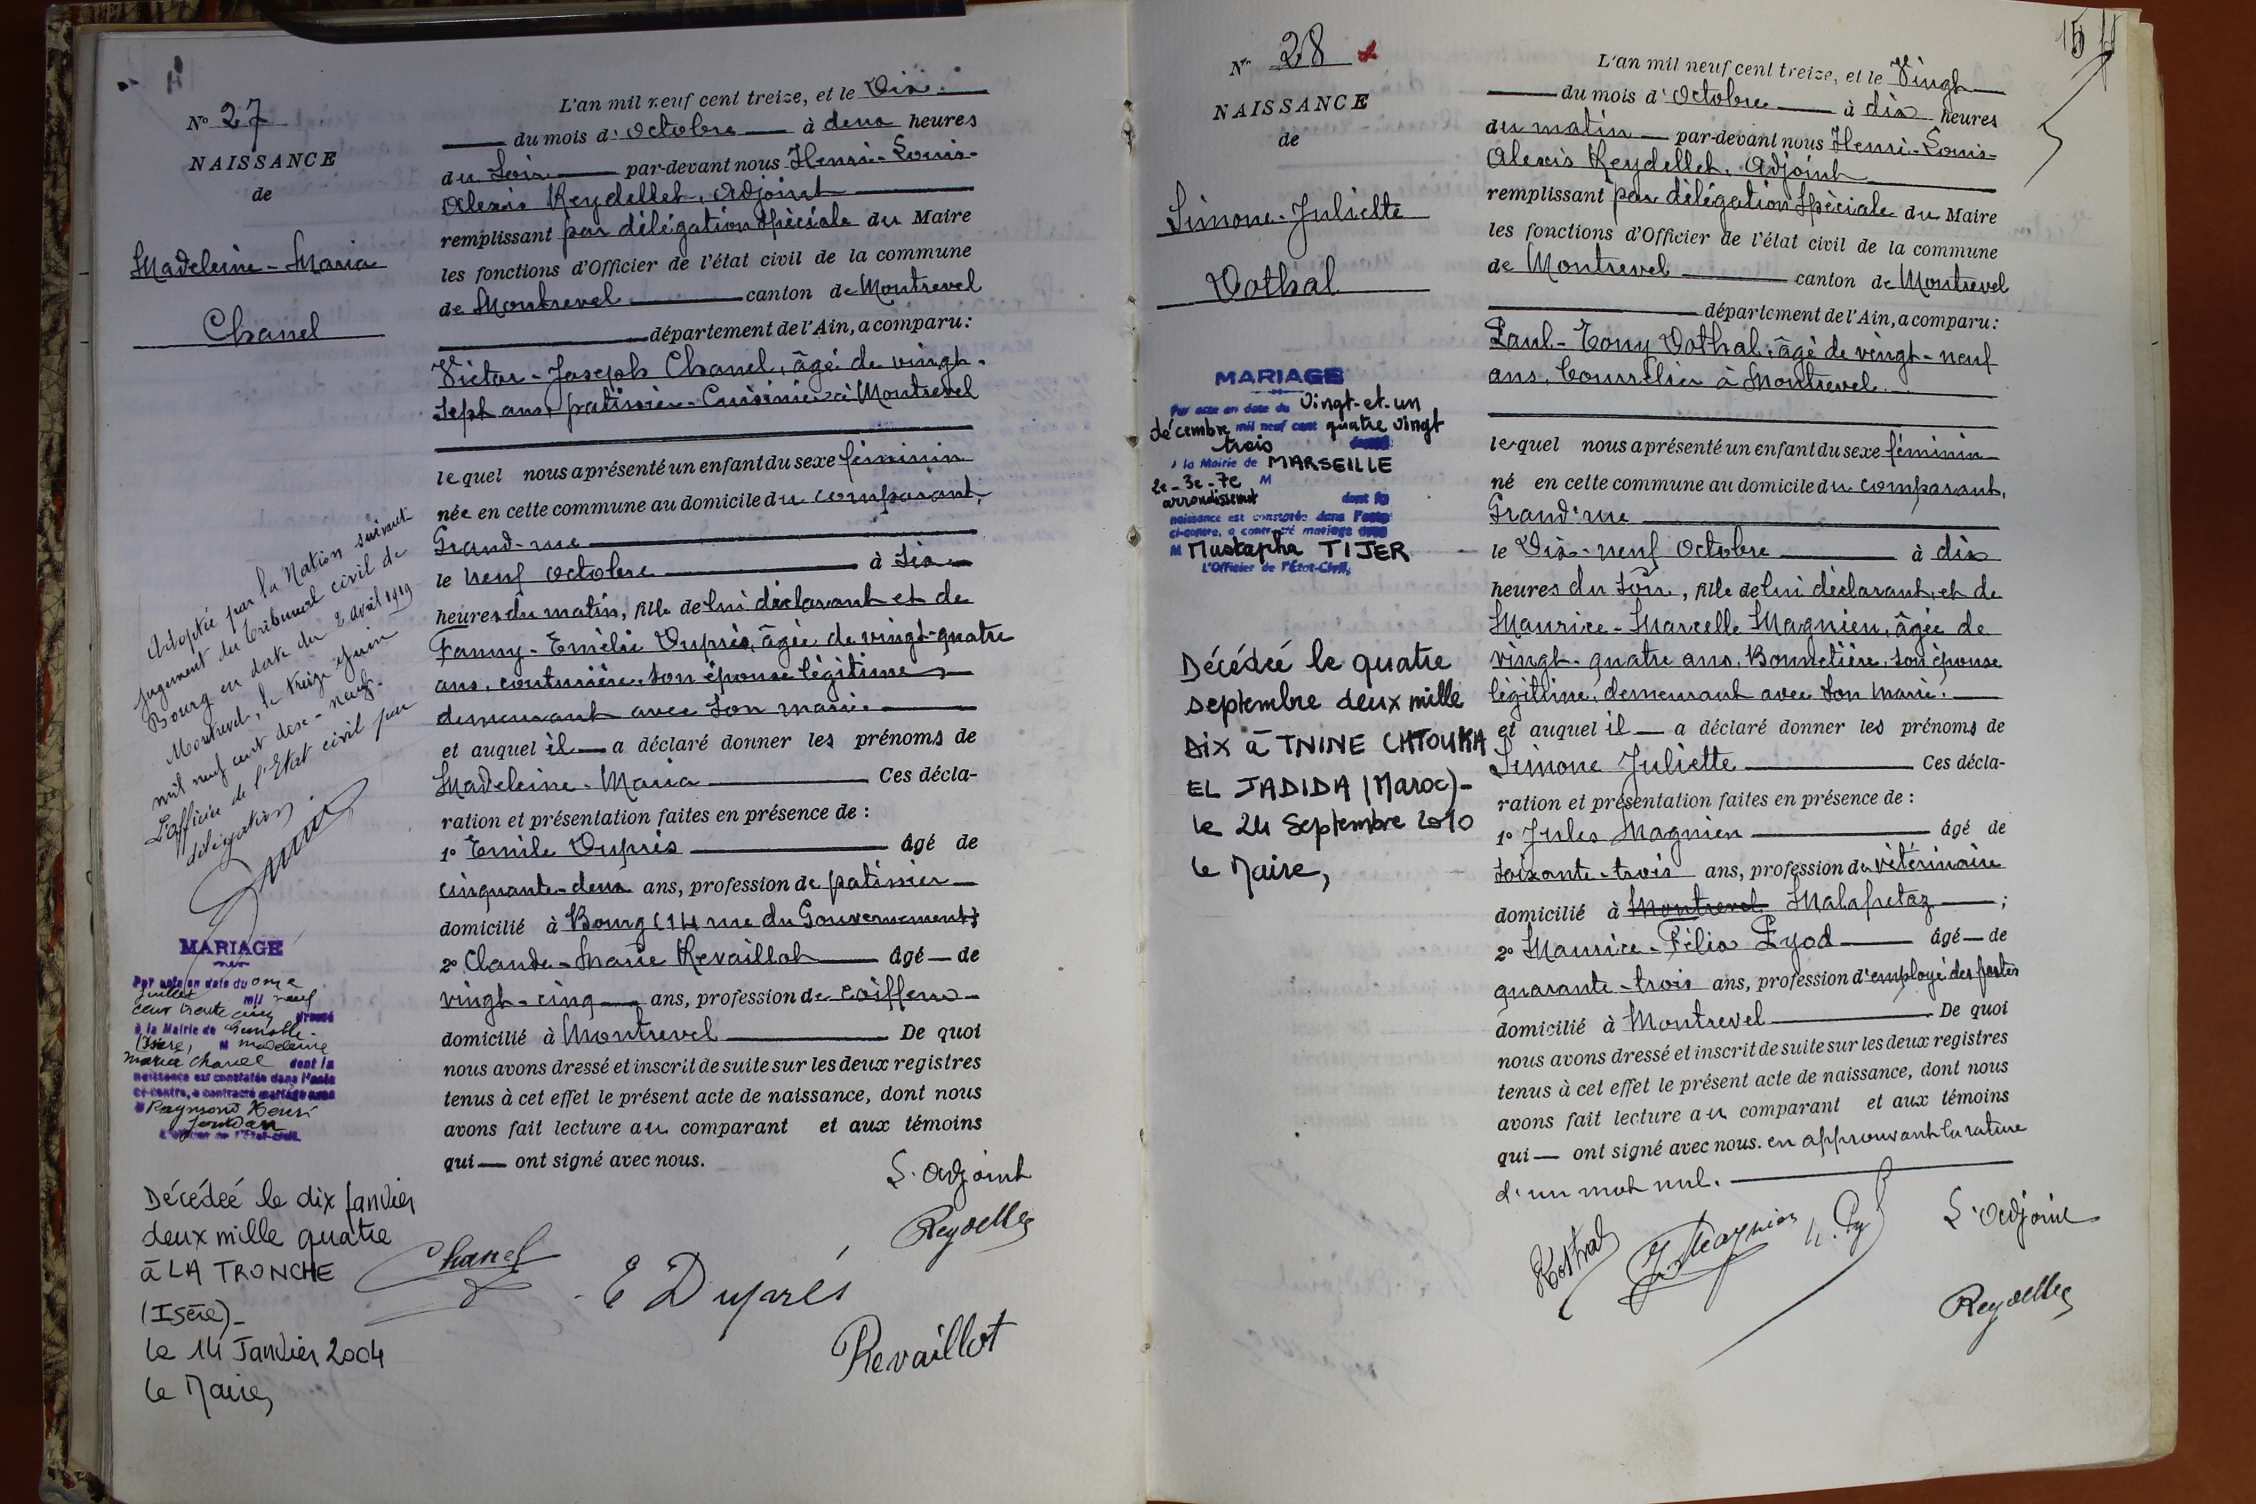 N° 27
NAISSANCE
de
Madeleine-Maria
Chanel
Adoptée par la Nation suivant
jugement du tribunal civil de
Bourg en date du 2 avril 1919
Montrevel, le treize Juin
mil neuf cent dix-neuf.
L'officier de l'Etat civil par
délégation.
MARIAGE
Par acte en date du onze
juillet mil neuf
cent trente cinq dressé
à la Mairie de Grenoble
(Isère) M Madeleine
Maria Chanel dont la
naissance est constatée dans l'acte
ci-contre, a contracté mariage avec
M Raymond Henri
Jourdan
L'officier de l'Etat-Civil.
Décédeé le dix Janvier
deux mille quatre
à LA TRONCHE
(Isère)_
le 14 Janvier 2004
le Maire,
L'an mil neuf cent treize, et le Dix
du mois d'Octobre à deux heures
du Soir par-devant nous Henri-Louis-
Alexis Reydellet, Adjoint
remplissant par délégation Spéciale du Maire
les fonctions d'Officier de l'état civil de la commune
de Montrevel canton de Montrevel
département de l'Ain, a comparu:
Victor-Joseph Chanel, âgé de vingt-
Sept ans, patissier-Cuisinier à Montrevel
lequel nous a présenté un enfant du sexe féminin
née en cette commune au domicile du comparant,
Grand-rue
le neuf Octobre à Six
heures du matin, fille de lui déclarant et de
Fanny-Emélie Duprés, âgée de vingt-quatre
ans, couturière, son épouse légitime,
demeurant avec son mari.
et auquel il a déclaré donner les prénoms de
Madeleine-Maria Ces décla-
ration et présentation faites en présence de :
1° Emile Duprés âgé de
cinquante-deux ans, profession de patissier
domicilié à Bourg (14 rue du Gouvernement)
2° Claude-Marie Revaillot âgé de
vingt-cinq ans, profession de Coiffeur
domicilié à Montrevel De quoi
nous avons dressé et inscrit de suite sur les deux registres
tenus à cet effet le présent acte de naissance, dont nous
avons fait lecture au comparant et aux témoins
qui ont signé avec nous.
L'Adjoint
Reydellet
Chanel
E Duprés
Revaillot
15
N° 28
NAISSANCE
de
Simone-Juliette
Vothal
MARIAGE
Par acte en date du Vingt-et-un
décembre mil neuf cent quatre vingt
trois dressé
à la Mairie de MARSEILLE
2e-3e-7e M
arrondissement dont la
naissance est constatée dans l'acte
ci-contre, a contracté mariage avec
M Mustapha TIJER
L'Officier de l'État-Civil,
Décédeé le quatre
septembre deux mille
dix à TNINE CHTOUKA
EL JADIDA (Maroc)-
le 24 Septembre 2010
le Maire,
L'an mil neuf cent treize, et le Vingt
du mois d'Octobre à dix heures
du matin par-devant nous Henri-Louis-
Alexis Reydellet, Adjoint
remplissant par délégation Spéciale du Maire
les fonctions d'Officier de l'état civil de la commune
de Montrevel canton de Montrevel
département de l'Ain, a comparu:
Paul-Tony Vothal, âgé de vingt-neuf
ans, Bourrelier à Montrevel
lequel nous a présenté un enfant du sexe féminin
né en cette commune au domicile du comparant,
Grand'rue
le Dix-neuf Octobre à dix
heures du soir, fille de lui déclarant, et de
Maurice-Marcelle Magnien, âgée de
vingt-quatre ans, Bonnetière, son épouse
légitime, demeurant avec son mari.
et auquel il a déclaré donner les prénoms de
Simone Juliette Ces décla-
ration et présentation faites en présence de :
1° Jules Magnien âgé de
soixante-trois ans, profession de vétérinaire
domicilié à Montrevel Malafretaz ;
2° Maurice-Félix Pyod âgé de
quarante-trois ans, profession d'employé des postes
domicilié à Montrevel De quoi
nous avons dressé et inscrit de suite sur les deux registres
tenus à cet effet le présent acte de naissance, dont nous
avons fait lecture au comparant et aux témoins
qui ont signé avec nous. en approuvant la rature
d'un mot nul.
J. Magnien
L'Adjoint
Reydellet